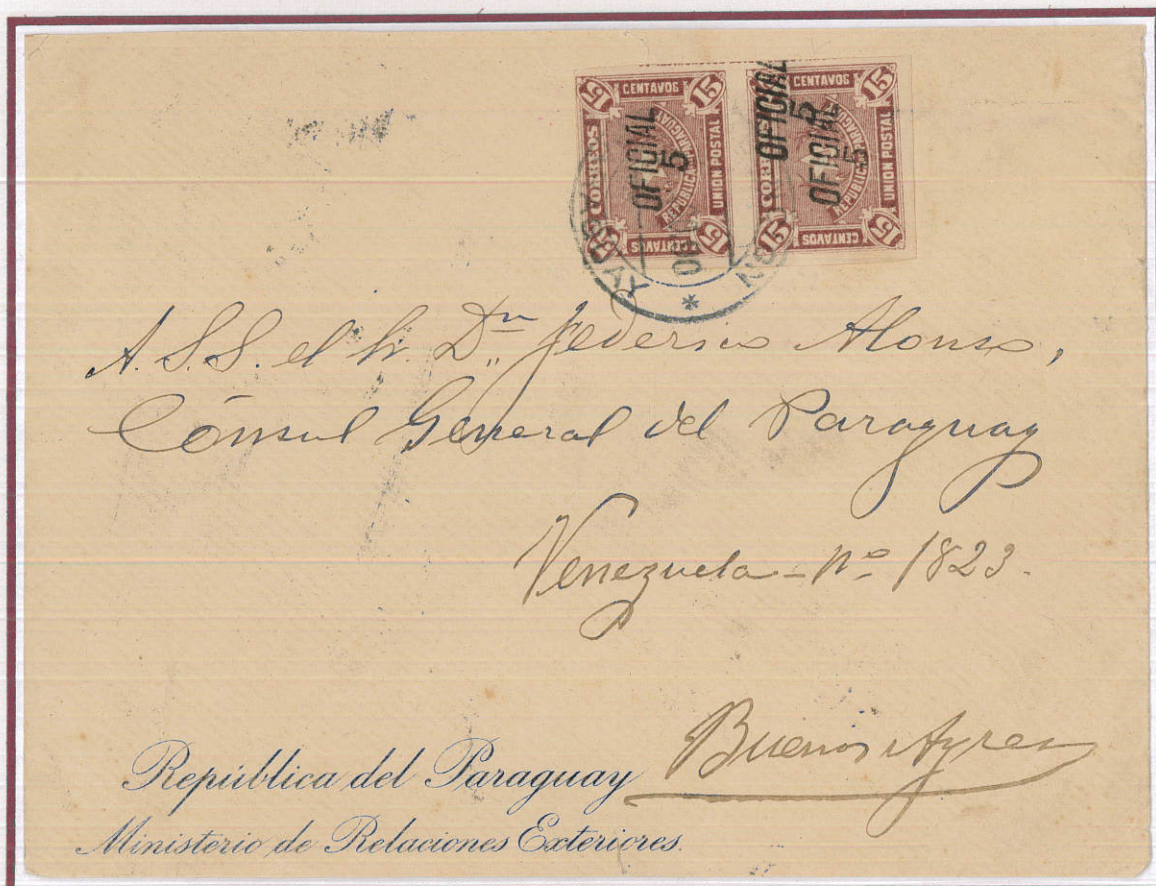 15 CENTAVOS 15
CORREOS
UNION POSTAL
REPUBLICA PARAGUAY
OFICIAL
5
15 CENTAVOS 15
15 CENTAVOS 15
CORREOS
UNION POSTAL
REPUBLICA PARAGUAY
OFICIAL
5
OFICIAL
5
15 CENTAVOS 15
A. S.S. el Sr. Dn Federico Alonso,
Cónsul General del Paraguay
Venezuela - No 1823.
Buenos Ayres
República del Paraguay
Ministerio de Relaciones Exteriores.